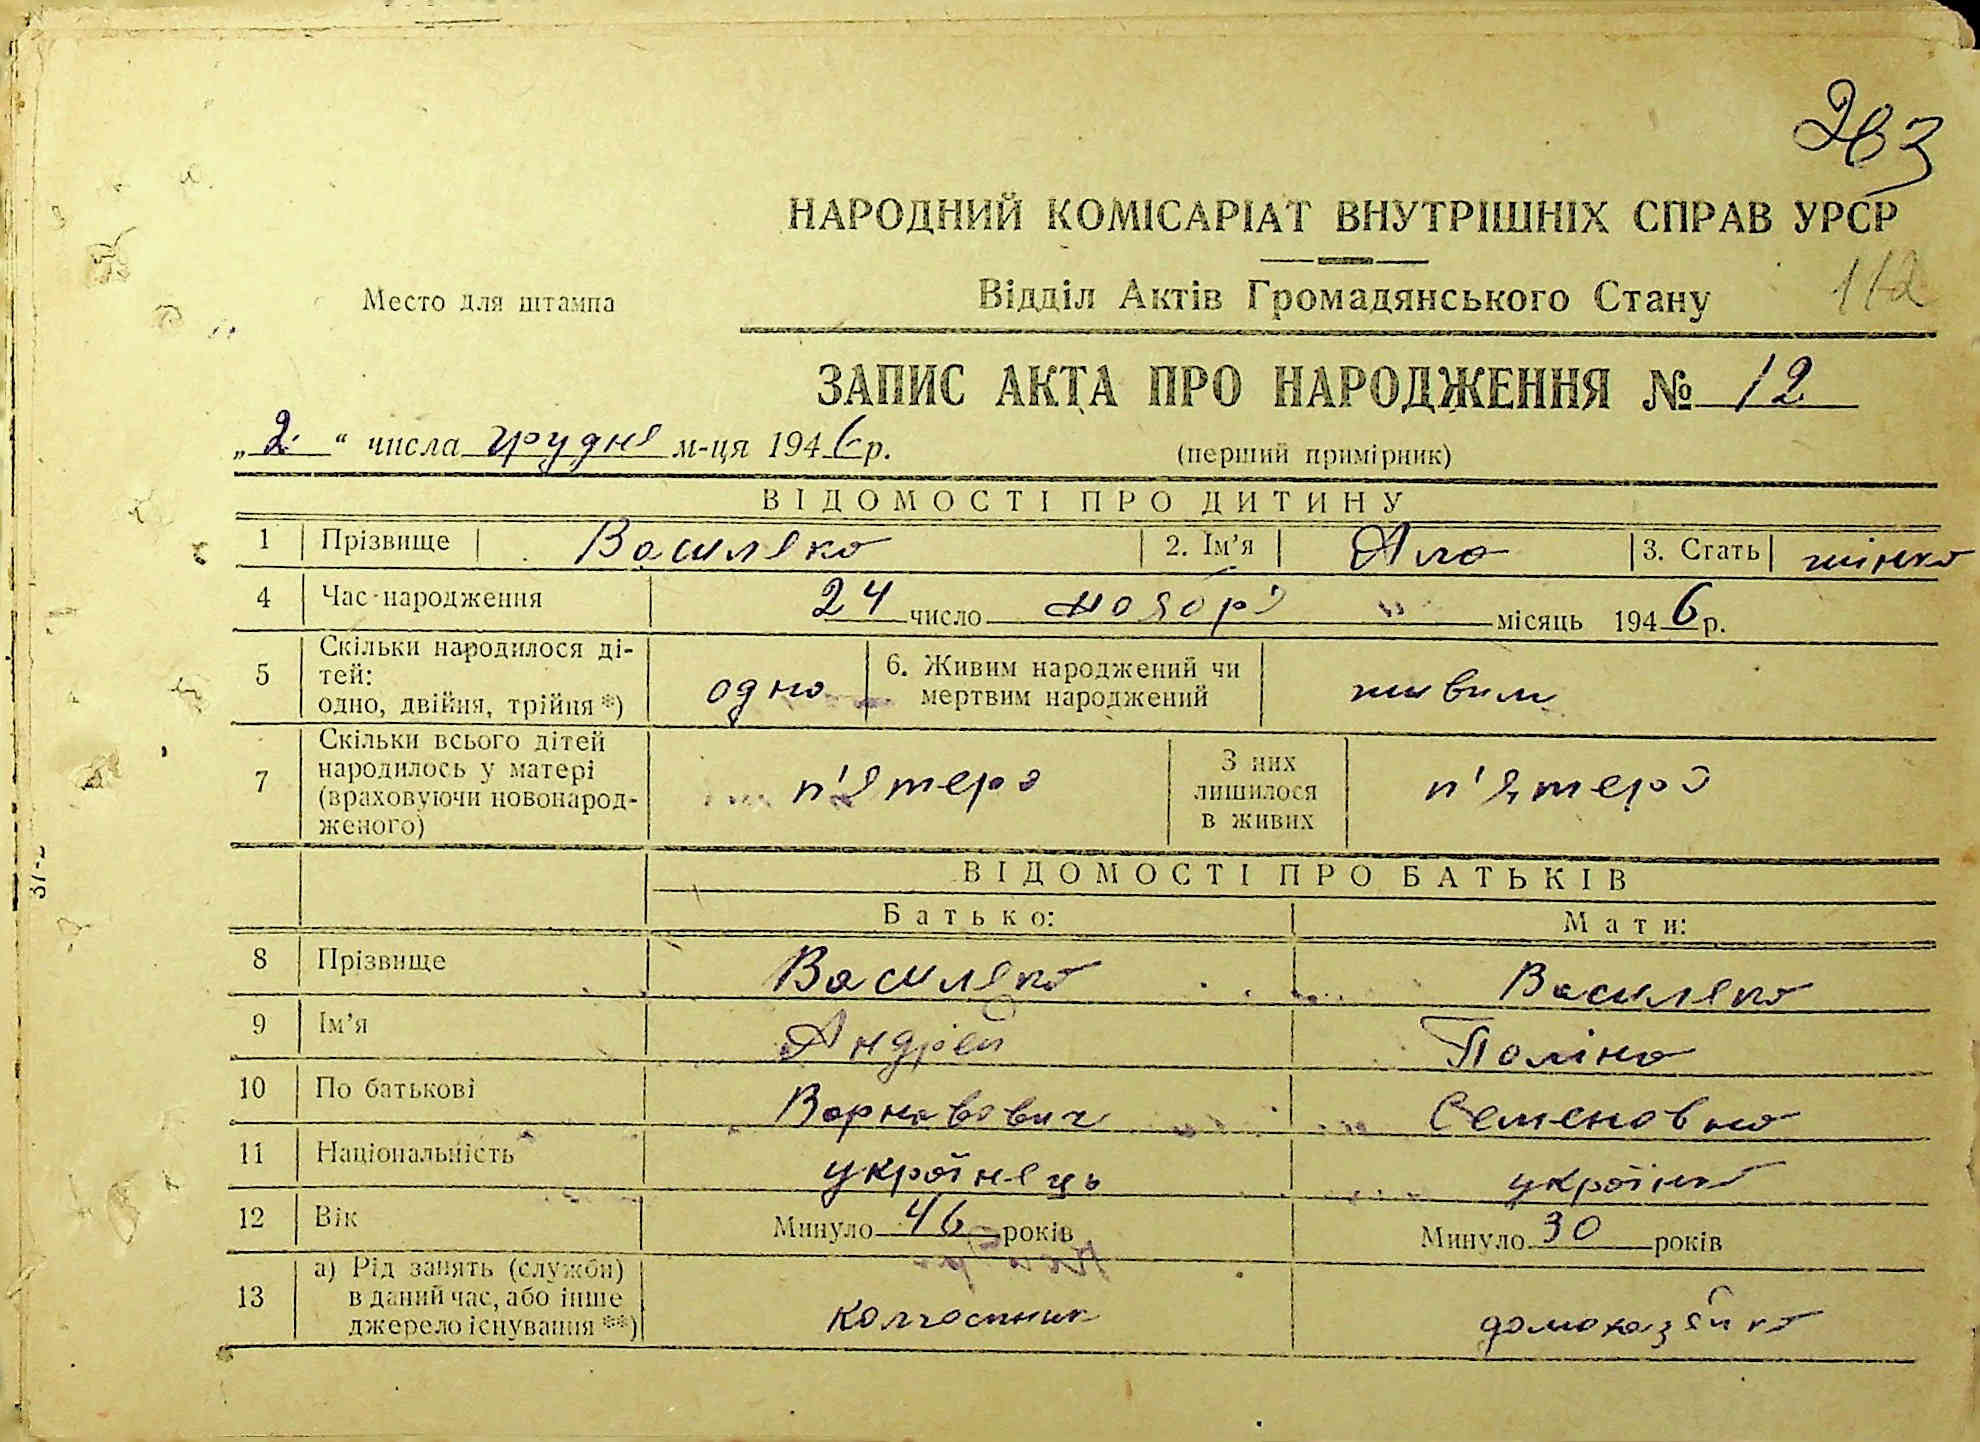 203
НАРОДНИЙ КОМІСАРІАТ ВНУТРІШНІХ СПРАВ УРСР
Место для штампа
Відділ Актів Громадянського Стану
112
ЗАПИС АКТА ПРО НАРОДЖЕННЯ № 12
„2“ числа грудня м-ця 1946 р.
(перший примірник)
ВІДОМОСТІ ПРО ДИТИНУ
1 Прізвище Василяка 2. Ім'я Ала 3. Стать жінка
4 Час народження 24 число ноября місяць 1946 р.
5 Скільки народилося ді-
тей:
одно, двійня, трійня *) одна 6. Живим народжений чи
мертвим народжений живим
7 Скільки всього дітей
народилось у матері
(враховуючи новонарод-
женого) п'ятеро З них
лишилося
в живих п'ятеро
ВІДОМОСТІ ПРО БАТЬКІВ
Батько: Мати:
8 Прізвище Василяка Василяка
9 Ім'я Андрій Поліна
10 По батькові Варнавович Семеновна
11 Національність українець українка
12 Вік Минуло 46 років Минуло 30 років
13 а) Рід занять (служби)
в даний час, або інше
джерело існування **) колгоспник домохазяйка